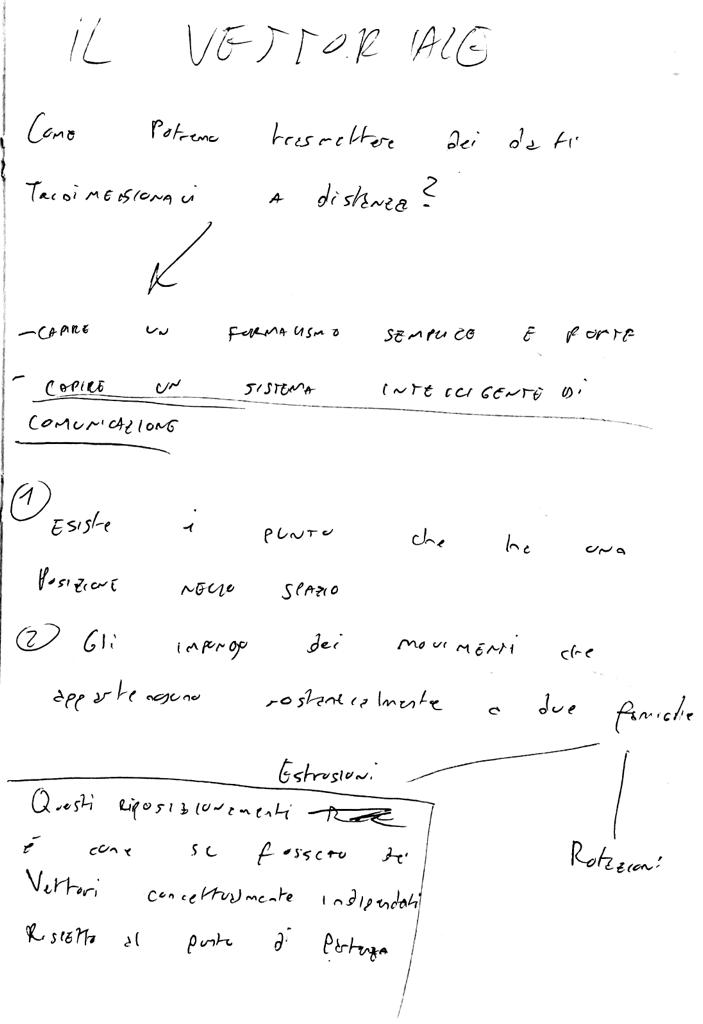 IL VETTORIALE
Come Potremo trasmettere dei dati
TRIDIMENSIONALI A distanza?
- CAPIRE UN FORMALISMO SEMPLICE E FORTE
- CAPIRE UN SISTEMA INTELLIGENTE DI
COMUNICAZIONE
1 Esiste 1 PUNTO che ha una
POSIZIONE NELLO SPAZIO
2 Gli impongo dei MOVIMENTI che
appartengono sostanzialmente a due famiglie
Estrusioni
Rotazioni
Questi RIPOSIZIONAMENTI
è come se fossero dei
Vettori concettualmente indipendenti
RISPETTO al punto di Partenza